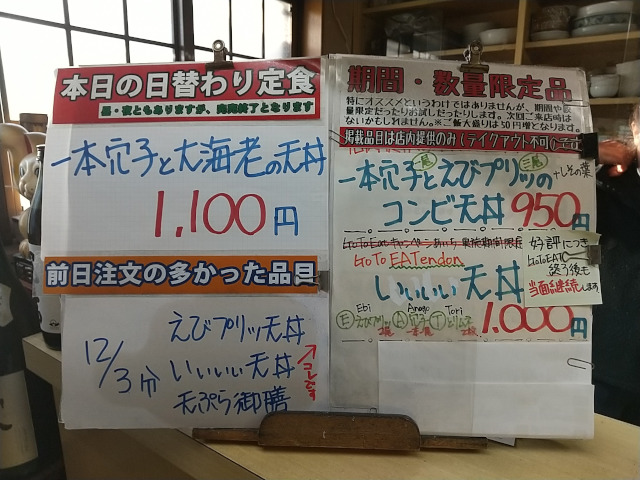 本日の日替わり定食
昼・夜ともありますが、肉肉終了となります
一本穴子と大海老の天丼
1,100円
前日注文の多かった品目
12/3分
えびプリッ天丼
いいいい天丼
天ぷら御膳
コレです
期間・数量限定品
特にオススメというわけではありませんが、期間や数
量限定だったりお試しだったりします。次回ご来店時は
ないかもしれません。※ご飯大盛りは50円増となります。
掲載品目は店内提供のみ(テイクアウト不可)です
一本穴子と二尾えびプリッ三尾の
+しその葉
コンビ天丼 950円
GoToEatキャンペーンあいち 実施期間限定
GoTo EATendon
いいいい天丼
Ebi Anago Tori
Ⓔえびプリッ Ⓐ穴子 Ⓣとり天
1,000円
好評につき
GoToEAT
終了後も
当面継続します